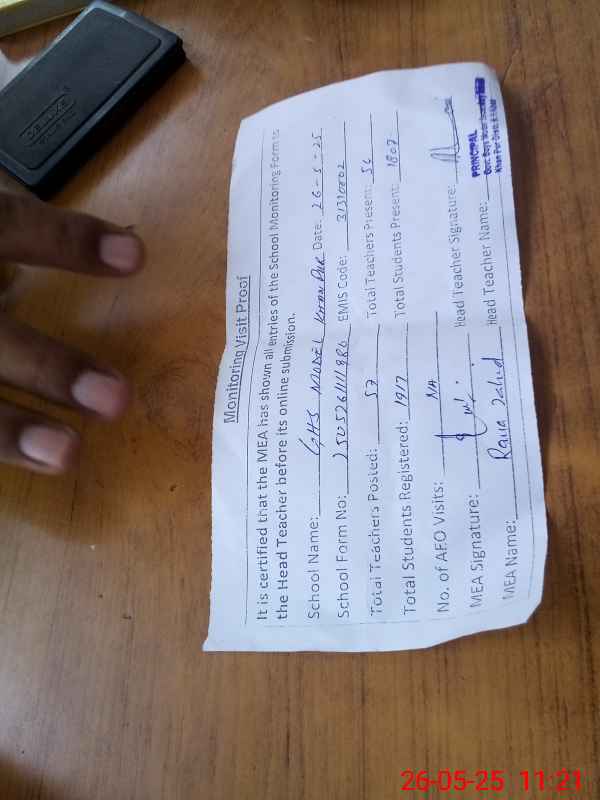 Monitoring Visit Proof
It is certified that the MEA has shown all entries of the School Monitoring Form to
the Head Teacher before its online submission.
School Name: GHS MODEL KHAN PUR Date: 26-5-25
School Form No: 250526111986 EMIS Code: 31310002
Total Teachers Posted: 57 Total Teachers Present: 56
Total Students Registered: 1917 Total Students Present: 1807
No. of AEO Visits: NA
MEA Signature: Head Teacher Signature:
MEA Name: Rana Head Teacher Name:
PRINCIPAL
Govt. Boys
Khan Pur Distt.
DELUXE
26-05-25 11:21